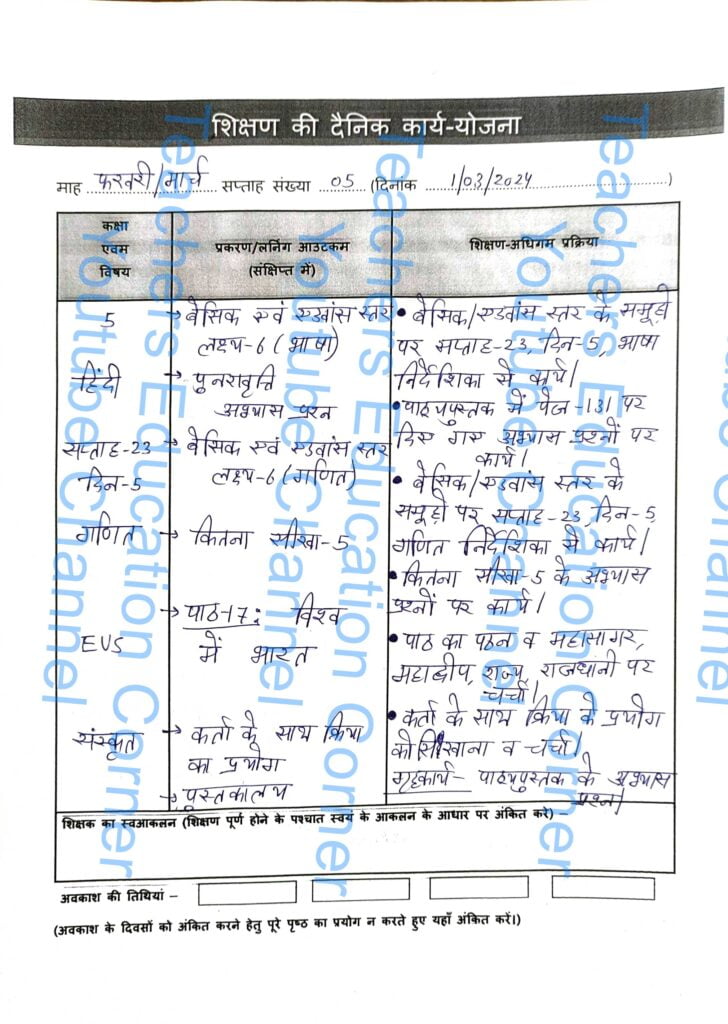 शिक्षण की दैनिक कार्य-योजना
माह फरवरी/मार्च सप्ताह संख्या 05 (दिनांक 1/03/2024)
कक्षा एवम विषय
प्रकरण/लर्निंग आउटकम (संक्षिप्त में)
शिक्षण-अधिगम प्रक्रिया
5
हिंदी
सप्ताह-23
दिन-5
गणित
EVS
संस्कृत
→ बेसिक एवं एडवांस स्तर
लक्ष्य-6 (भाषा)
→ पुनरावृत्ति
अभ्यास प्रश्न
→ बेसिक एवं एडवांस स्तर
लक्ष्य-6 (गणित)
→ कितना सीखा-5
→ पाठ-17: विश्व
में भारत
→ कर्ता के साथ क्रिया
का प्रयोग
→ पुस्तकालय
• बेसिक/एडवांस स्तर के समूहों
पर सप्ताह-23, दिन-5, भाषा
निर्देशिका से कार्य।
• पाठ्यपुस्तक में पेज-131 पर
दिए गए अभ्यास प्रश्नों पर
कार्य।
• बेसिक/एडवांस स्तर के
समूहों पर सप्ताह-23, दिन-5
गणित निर्देशिका से कार्य।
• कितना सीखा-5 के अभ्यास
प्रश्नों पर कार्य।
• पाठ का पठन व महासागर,
महाद्वीप, राज्य, राजधानी पर
चर्चा।
• कर्ता के साथ क्रिया के प्रयोग
को सिखाना व चर्चा।
गृहकार्य- पाठ्यपुस्तक के अभ्यास
प्रश्न।
शिक्षक का स्वआकलन (शिक्षण पूर्ण होने के पश्चात स्वयं के आकलन के आधार पर अंकित करे) –
अवकाश की तिथियां –
(अवकाश के दिवसों को अंकित करने हेतु पूरे पृष्ठ का प्रयोग न करते हुए यहाँ अंकित करें।)
Teachers Education Corner
Youtube Channel
Teachers Education Corner
Youtube Channel
Teachers Education Corner
Youtube Channel